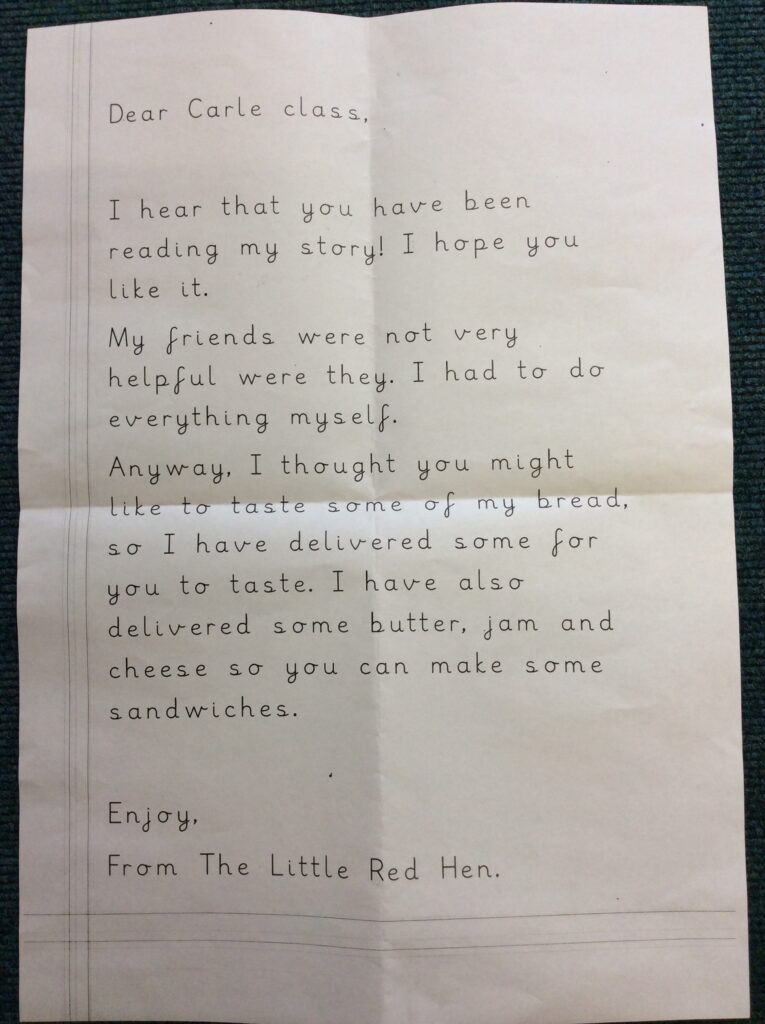 Dear Carle class,
I hear that you have been
reading my story! I hope you
like it.
My friends were not very
helpful were they. I had to do
everything myself.
Anyway, I thought you might
like to taste some of my bread,
so I have delivered some for
you to taste. I have also
delivered some butter, jam and
cheese so you can make some
sandwiches.
Enjoy,
From The Little Red Hen.